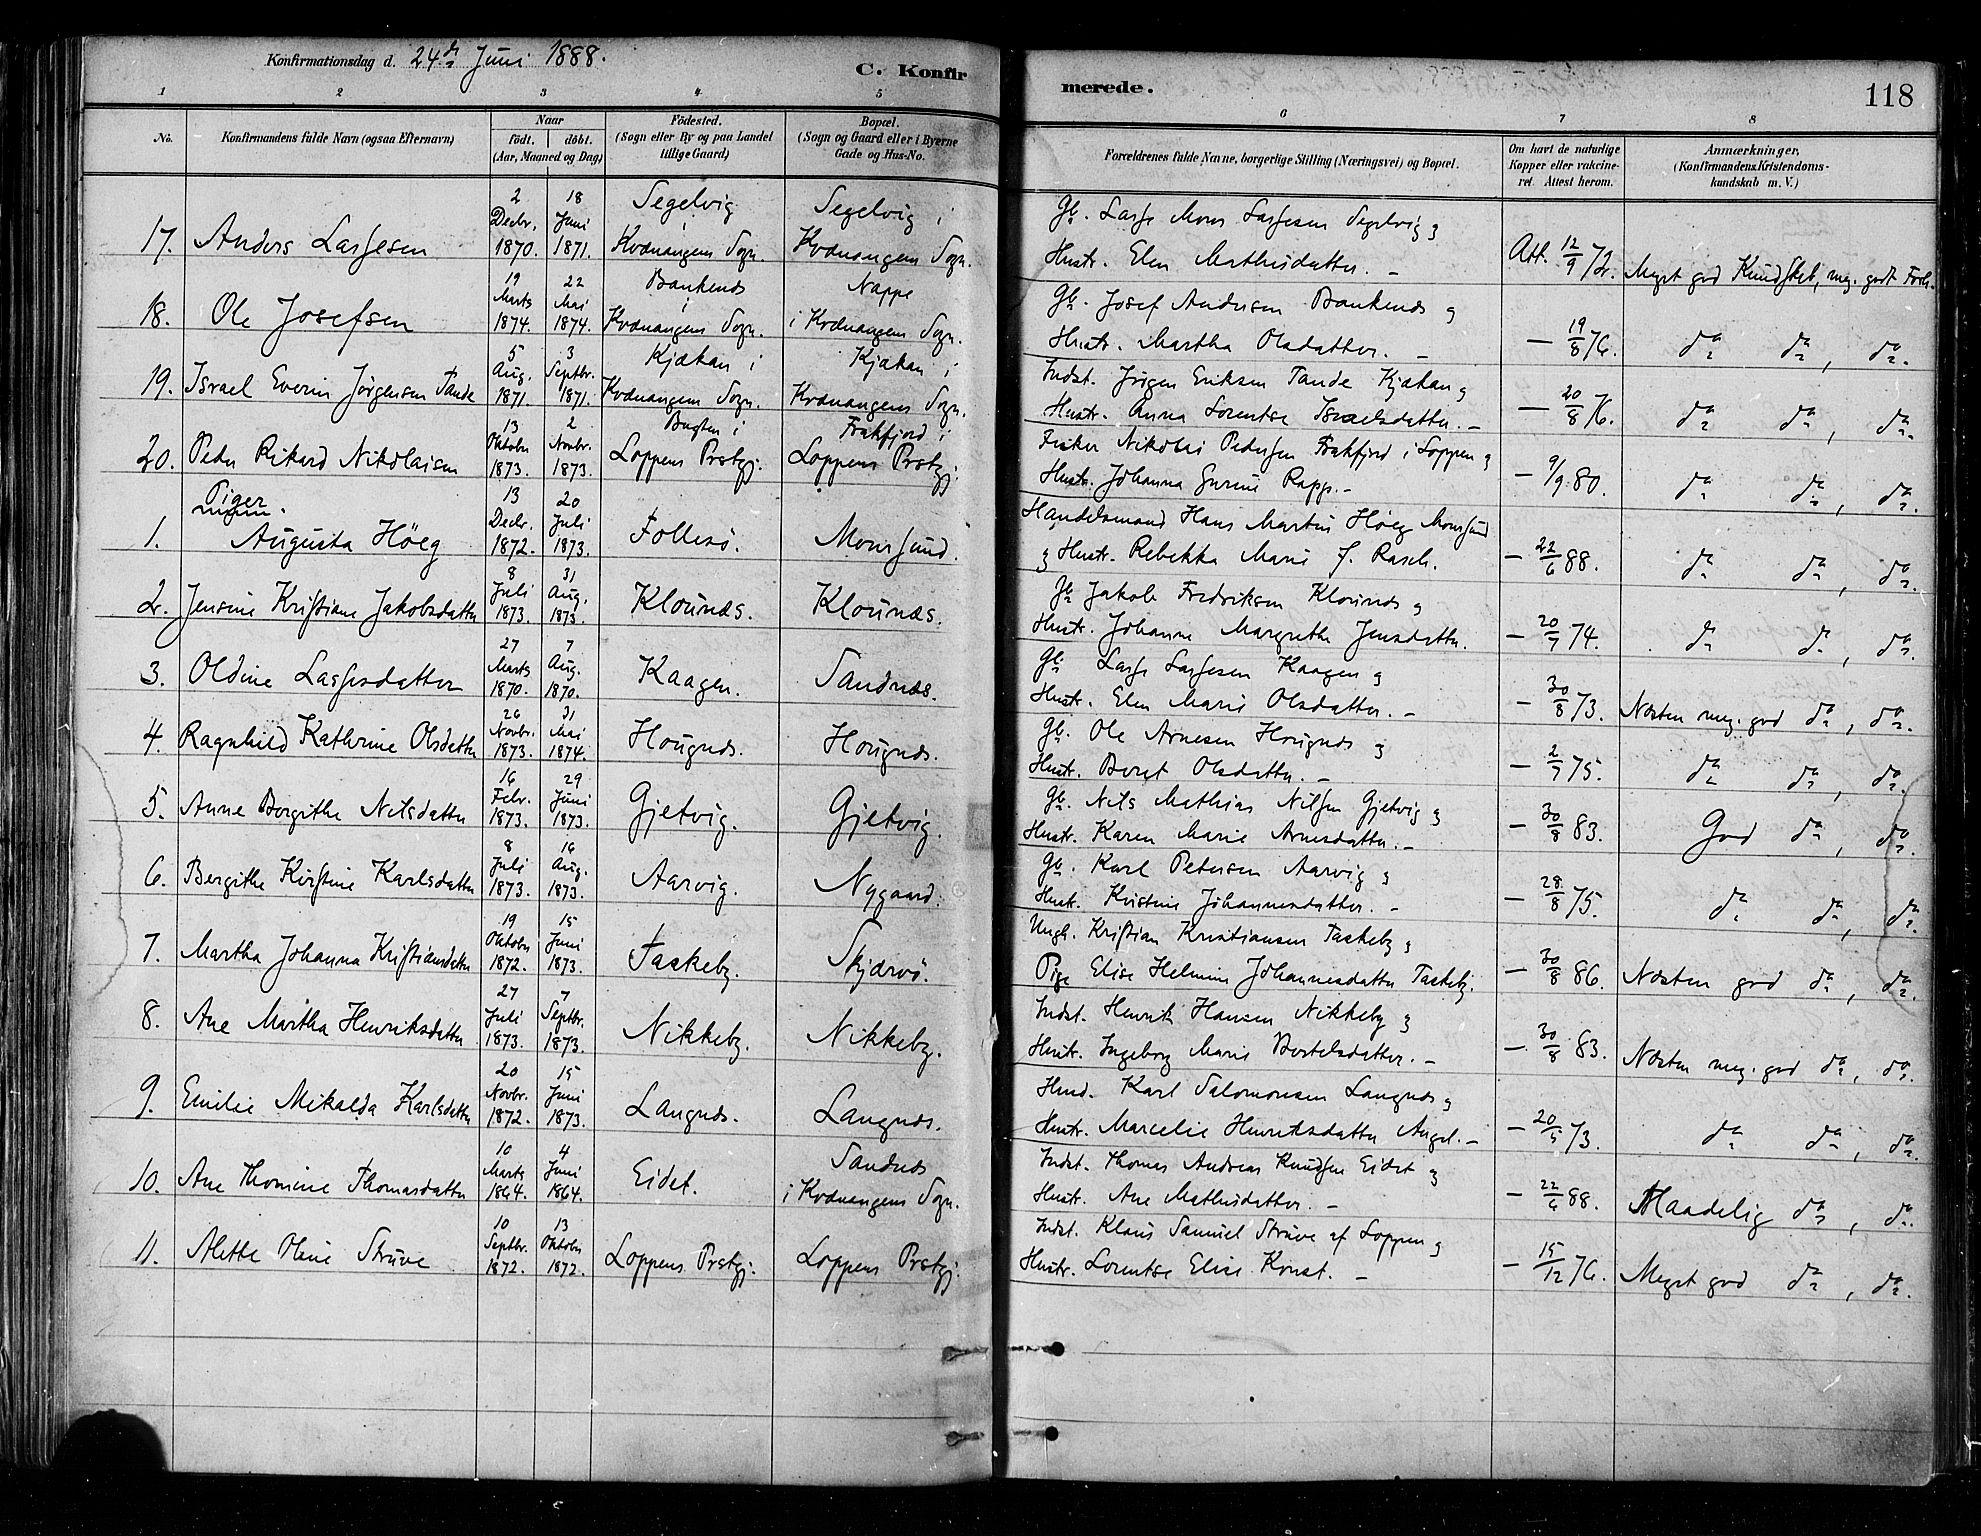 Konfirmationsdag d. 24de Juni 1888.
C. Konfirmerede.
118
1 2 3 4 5 6 7 8
No. Konfirmandens fulde Navn (ogsaa Efternavn) Naar födt. döbt. (Aar, Maaned og Dag) Födested. (Sogn eller By og paa Landet tillige Gaard) Bopæl. (Sogn og Gaard eller i Byerne Gade og Hus-No. Forældrenes fulde Navne, borgerlige Stilling (Næringsvei) og Bopæl. Om havt de naturlige Kopper eller vaccineret. Attest herom. Anmærkninger, (Konfirmandens Kristendomskundskab m. V.)
17. Anders Lassesen 2 Decbr. 1870. 18 Juni 1871. Segelvig i Kvænangens Sogn. Segelvig i Kvænangens Sogn. Gb. Lasse Mons Lassesen Segelvig og Hustr. Elen Mathisdatter. – Att. 12/9 72. Meget god Kundsk., meg. godt Forh.
18. Ole Josefsen 19 Marts 1874. 22 Mai 1874. Bankenæs i Kvænangens Sogn. Nappe i Kvænangens Sogn. Gb. Josef Andersen Bankenæs og Hustr. Martha Olsdatter. – – 19/8 76. do do, do.
19. Israel Everin Jörgensen Tande 5 Aug. 1871 3 Septbr. 1871. Kjækan i Kvænangens Sogn. Kjækan i Kvænangens Sogn. Indst. Jörgen Eriksen Tande Kjækan og Hustr. Anna Lorentse Israelsdatter. – – 20/8 76. do do, do.
20. Peder Rikard Nikolaisen 13 Oktober 1873. 2 Novbr. 1873. Bugten i Loppens Prstgj. Frakfjord i Loppens Prstgj. Fisker Nikolai Pedersen Frakfjord i Loppen og Hustr. Johanna Gurine Rapp. – – 9/9 80. do do, do.
Piger
1. Augusta Höeg 13 Decbr. 1872. 20 Juli 1873. Follesö. Moursund. Handelsmand Hans Martin Höeg Moursund og Hustr. Rebekka Marie f. Rasch. – 22/6 88. do do, do.
2. Jensine Kristiane Jakobsdatter 8 Juli 1873. 31 Aug. 1873. Klounæs. Klounæs. Gb. Jakob Fredriksen Klounæs og Hustr. Johanne Margrethe Jensdatter. – 20/9 74. do do, do.
3. Oldine Lassesdatter 27 Marts 1870. 7 Aug. 1870. Kaagen. Sandnæs. Gb. Lasse Lassesen Kaagen og Hustr. Elen Marie Olsdatter. – – 30/8 73. Næsten meg. god do, do.
4. Ragnhild Kathrine Olsdatter 26 Novbr. 1873. 31 Mai 1874. Hougnæs. Hougnæs. Gb. Ole Arnesen Hougnæs og Hustr. Beret Olsdatter. – – 2/9 75. do do, do.
5. Anne Bergithe Nilsdatter 16 Febr. 1873. 29 Juni 1873. Gjetvig. Gjetvig. Gb. Nils Mathias Nilsen Gjetvig og Hustr. Karen Marie Arnesdatter. – – 30/8 83. God do, do.
6. Bergithe Kirstine Karlsdatter 8 Juli 1873. 16 Aug. 1873. Aarvig. Nygaard. Gb. Karl Petersen Aarvig og Hustr. Kristine Johannesdatter. – – 28/8 75. do do, do.
7. Martha Johanna Kristiansdatter 19 Oktober 1872. 15 Juni 1873. Taskeby. Skjærvö. Ungk. Kristian Kristiansen Taskeby og Pige Elise Helmine Johannesdatter Taskeby. – 30/8 86. Næsten god do, do.
8. Ane Martha Henriksdatter 27 Juli 1873. 7 Septbr. 1873. Nikkeby. Nikkeby. Indst. Henrik Hansen Nikkeby og Hustr. Ingeborg Marie Bertelsdatter. – – 30/8 83. Næsten meg. god do, do.
9. Emilie Mikalda Karlsdatter 20 Novbr. 1872. 15 Juni 1873. Langnæs. Langnæs. Huusd. Karl Salomonsen Langnæs og Hustr. Marcelie Henriksdatter Angel. – – 20/5 73. do do, do.
10. Ane Thomine Thomasdatter 10 Marts 1864. 4 Juni 1864. Eidet. Sandnæs i Kvænangens Sogn. Indst. Thomas Andreas Knudsen Eidet og Hustr. Ane Mathisdatter. – – 22/6 88. Maadelig do, do.
11. Alette Oline Strúve 10 Septbr. 1872. 13 Oktober 1872. Loppens Prstgj. Loppens Prstgj. Indst. Klaus Samuel Strúve af Loppen og Hustr. Lorentse Elise Konst. – – 15/12 76. Meget god do, do.